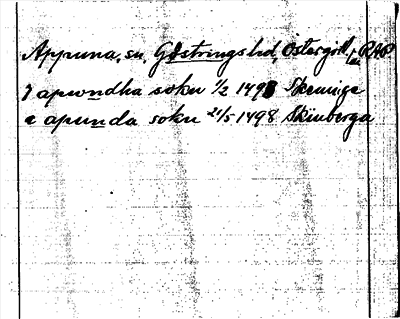 Appuna, sn, Göstrings hd, Östergötl, RAP
J apwndha soku 1/2 1498 Skeninge
a apunda soku 21/5 1498 Skinberga